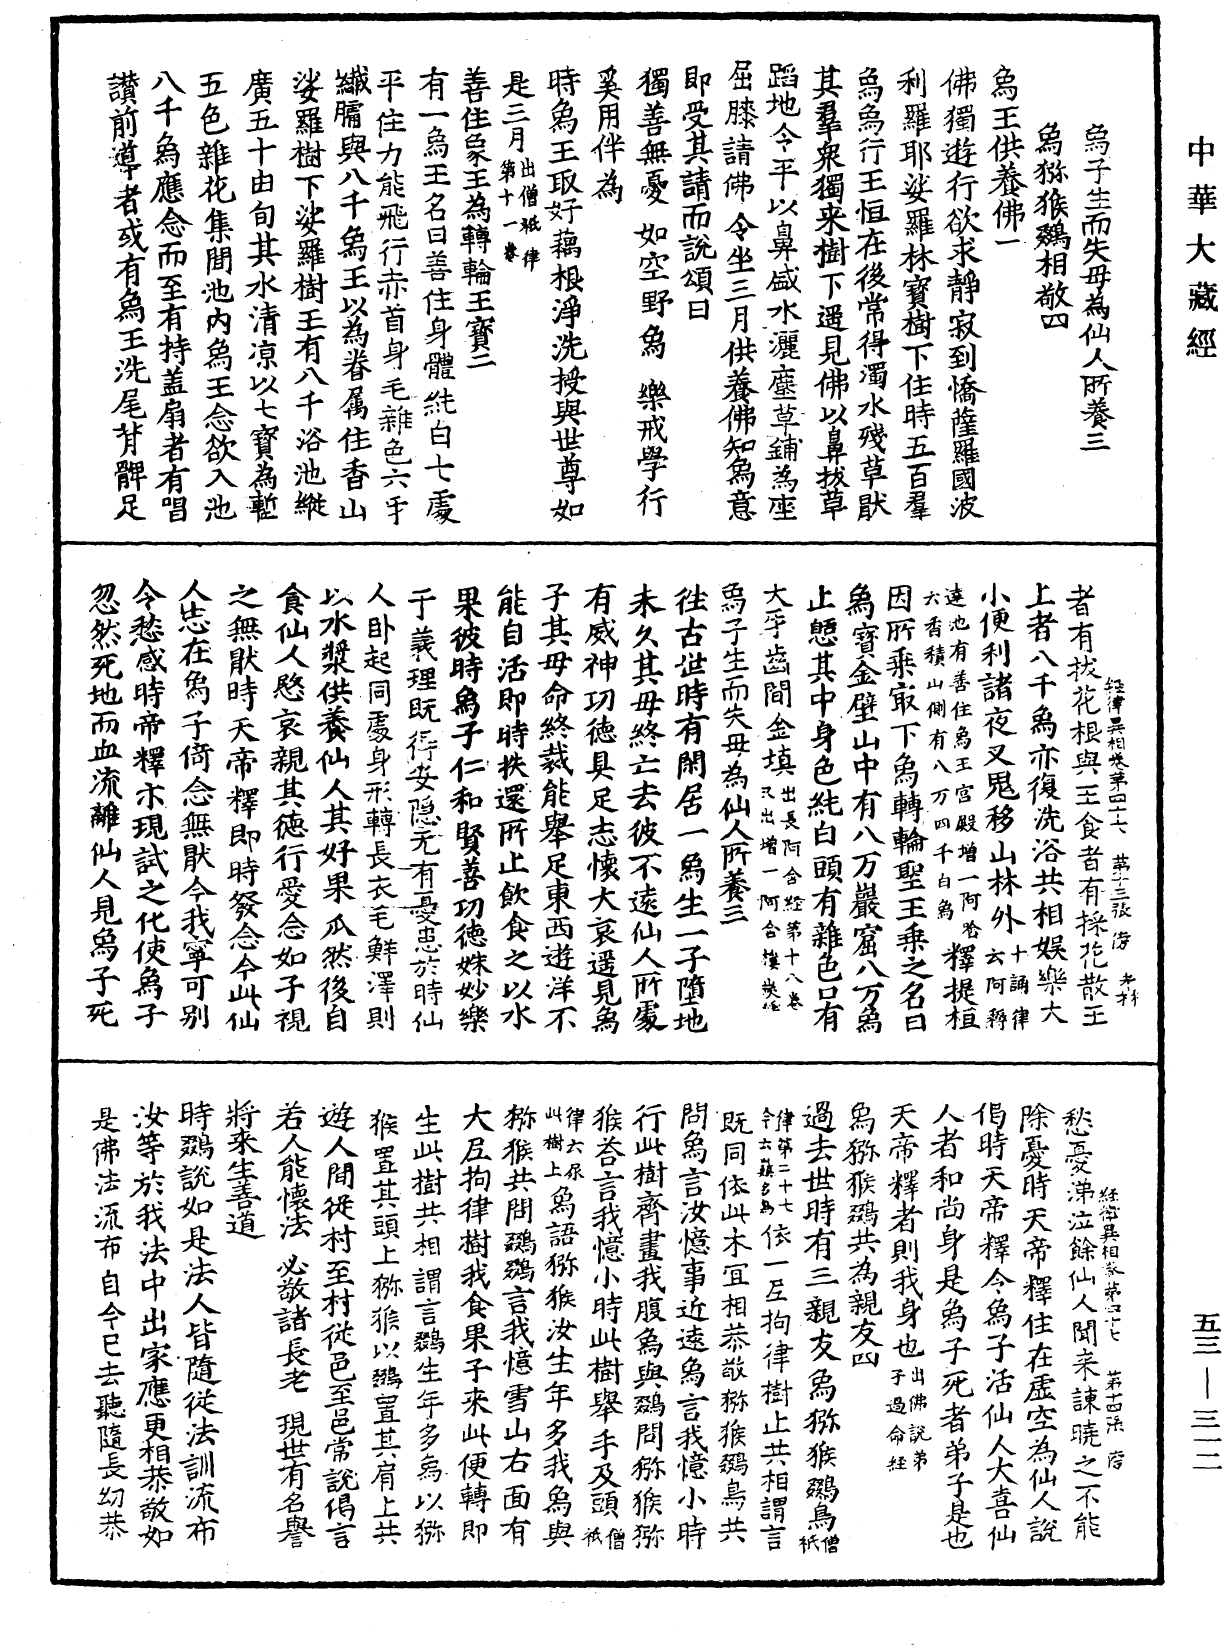 中華大藏經
象子生而失母為仙人所養三
象獼猴鵽相敬四
象王供養佛一
佛獨遊行欲求靜寂到憍薩羅國波
利羅耶娑羅林寶樹下住時五百羣
象象行王恒在後常得濁水殘草猒
其羣衆獨来樹下遥見佛以鼻拔草
蹈地令平以鼻盛水灑塵草鋪為座
屈膝請佛令坐三月供養佛知象意
即受其請而說頌曰
獨善無憂 如空野象 樂戒學行
奚用伴為
時象王取好藕根淨洗授與世尊如
是三月出僧祇律第十一卷
善住象王為轉輪王寶二
有一象王名曰善住身體純白七處
平住力能飛行赤首身毛雜色六牙
纖𦟛與八千象王以為眷属住香山
娑羅樹下娑羅樹王有八千浴池縱
廣五十由旬其水清凉以七寶為塹
五色雜花集間池内象王念欲入池
八千象應念而至有持盖扇者有唱
讃前導者或有象王洗尾背髀足
經律異相卷第四十七 第十三張 㳺
者有拔花根與王食者有採花散王
上者八千象亦復洗浴共相娱樂大
小便利諸夜叉鬼移山林外十誦律云阿耨
達池有善住象王宮殿增一阿含六香積山側有八万四千白象釋提桓
因所乘㝡下象轉輪聖王乗之名曰
象寶金壁山中有八万巖窟八万象
止憇其中身色純白頭有雜色口有
大牙齒間金填出長阿含經第十八卷又出增一阿含
象子生而失母為仙人所養三
往古世時有閑居一象生一子墮地
未久其母終亡去彼不逺仙人所處
有威神功徳具足志懷大哀遥見象
子其母命終裁能舉足東西遊洋不
能自活即時扶還所止飲食之以水
果彼時象子仁和賢善功徳姝妙樂
于義理既得安隠无有憂患於時仙
人卧起同處身形轉長衣毛鮮澤則
以水漿供養仙人其好果瓜然後自
食仙人愍哀親其徳行愛念如子視
之無猒時天帝釋即時發念今此仙
人志在象子倚念無猒今我寧可别
令愁慼時帝釋示現試之化使象子
忽然死地而血流離仙人見象子死
經律異相卷第四十七 第十四張 㳺
愁憂涕泣餘仙人聞来諫曉之不能
除憂時天帝釋住在虚空為仙人說
偈時天帝釋令象子活仙人大喜仙
人者和尚身是象子死者弟子是也
天帝釋者則我身也出佛說弟子過命經
象獼猴鵽共為親友四
過去世時有三親友象獼猴鵽鳥僧祇
律第二十七依一尼拘律樹止共相謂言
既同依此木冝相恭敬獼猴鵽鳥共
問象言汝憶事近逺象言我憶小時
行此樹齊我腹象與鵽問獼猴獼
猴荅言我憶小時此樹舉手及頭僧祇
律六尿此樹上象語獼猴汝生年多我象與
獼猴共問鵽鵽言我憶雪山右面有
大尼拘律樹我食果子来此便轉即
生此樹共相謂言鵽生年多象以獼
猴置其頭上獼猴以鵽置其肩上共
遊人間從村至村從邑至邑常說偈言
若人能懷法 必敬諸長老 現世有名譽
將来生善道
時鵽說如是法人皆隨從法訓流布
汝等於我法中出家應更相恭敬如
是佛法流布自今已去聽隨長幼恭
五三—三一二